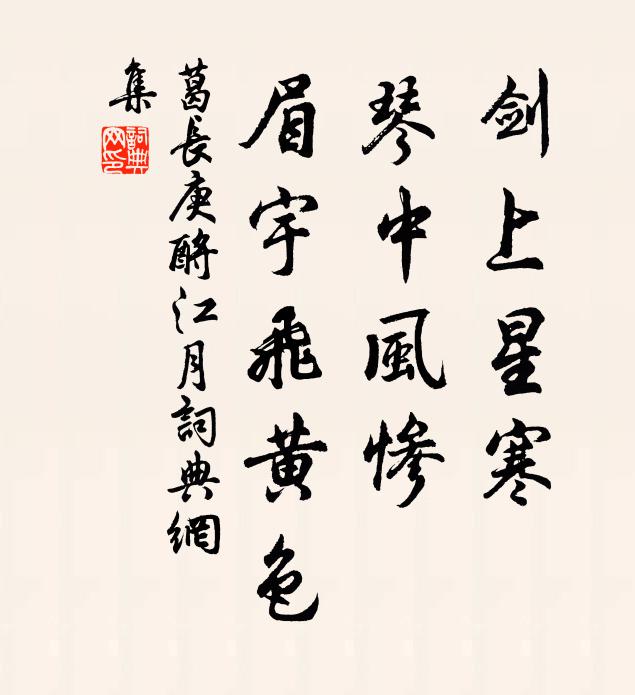 劍上星寒
琴中風慘
眉宇飛黃色
葛長庚酹江月詞典網
集
詞典網印